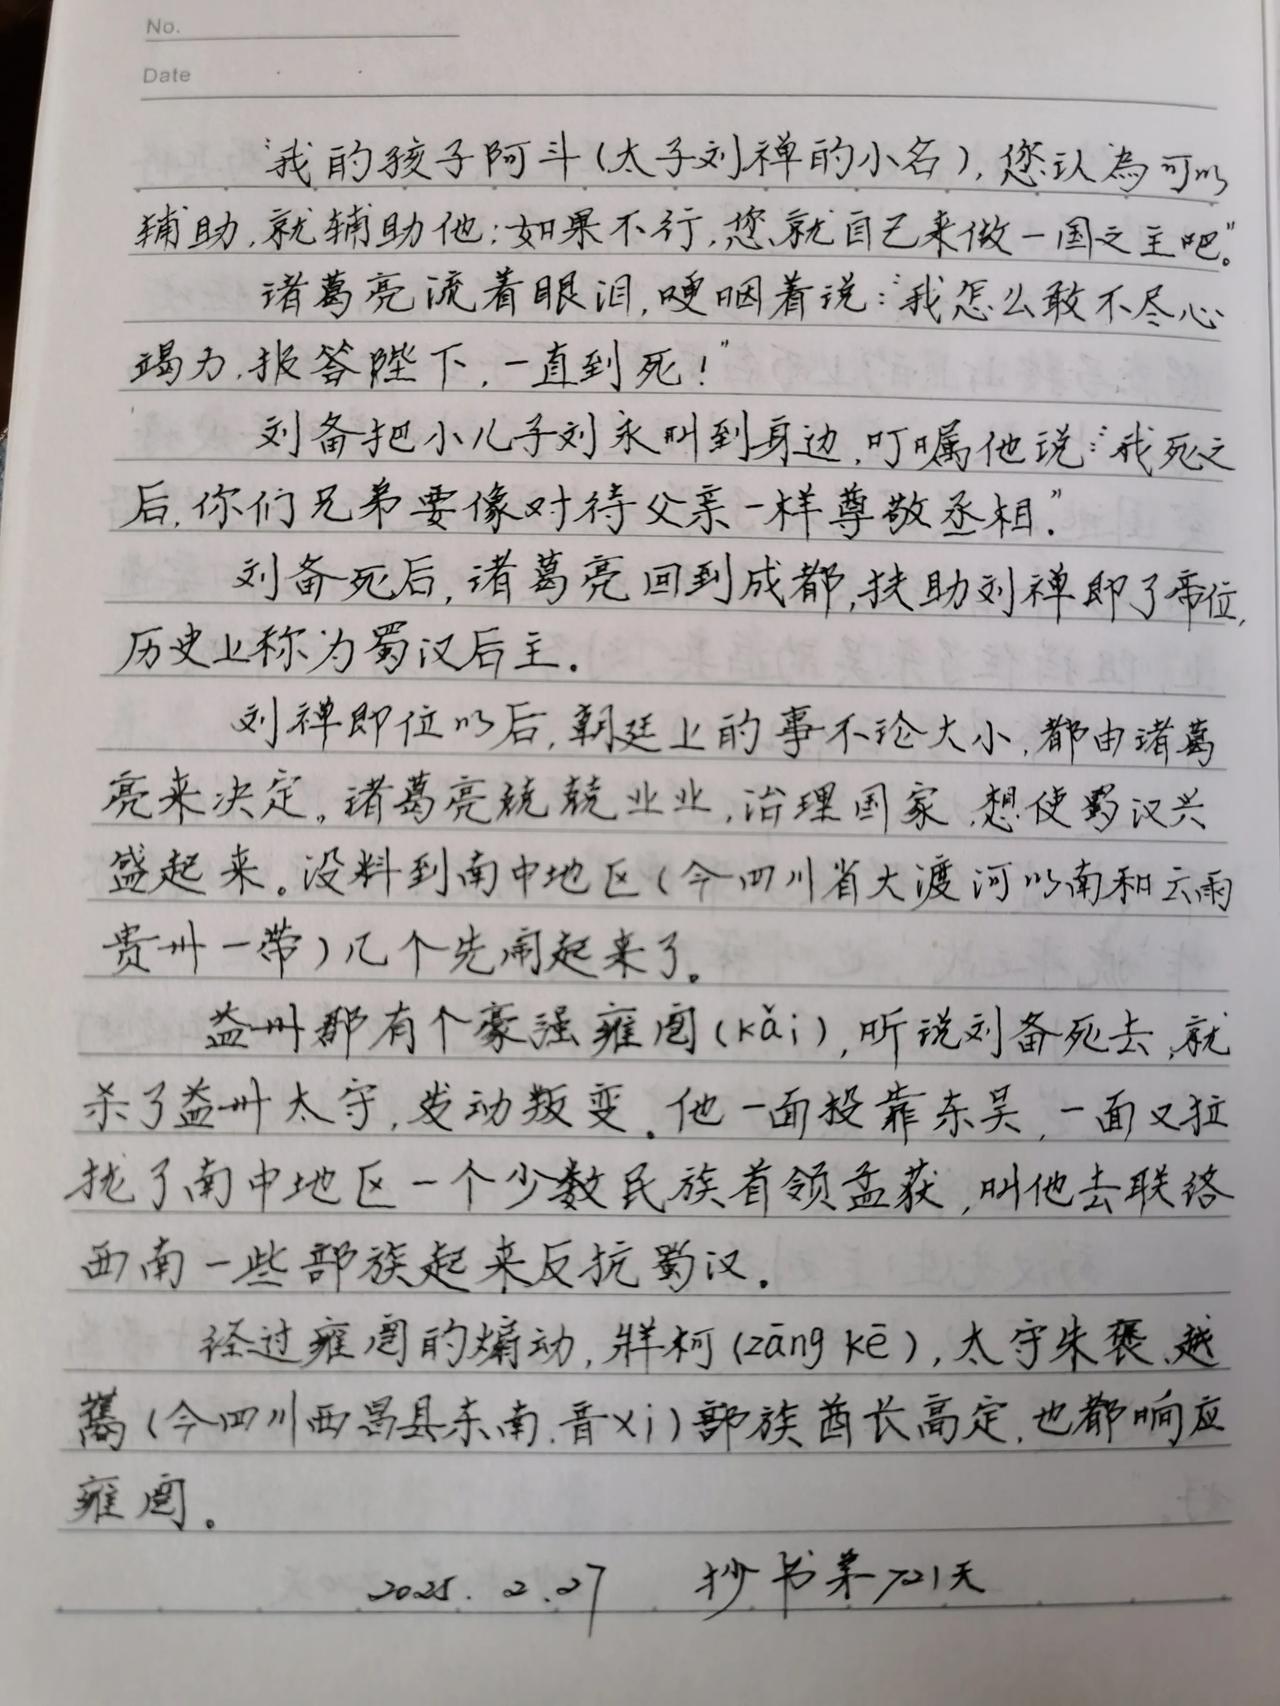 No.
Date
“我的孩子阿斗(太子刘禅的小名),您认為可以
辅助,就辅助他;如果不行,您就自己来做一国之主吧。”
诸葛亮流着眼泪,哽咽着说:“我怎么敢不尽心
竭力,报答陛下,一直到死!”
刘备把小儿子刘永叫到身边,叮嘱他说:“我死之
后,你们兄弟要像对待父亲一样尊敬丞相.”
刘备死后,诸葛亮回到成都,扶助刘禅即了帝位,
历史上称为蜀汉后主.
刘禅即位以后,朝廷上的事不论大小,都由诸葛
亮来决定。诸葛亮兢兢业业,治理国家,想使蜀汉兴
盛起来。没料到南中地区(今四川省大渡河以南和云南
贵州一带)几个先闹起来了。
益州郡有个豪强雍闿(kǎi),听说刘备死去,就
杀了益州太守,发动叛变.他一面投靠东吴,一面又拉
拢了南中地区一个少数民族首领孟获,叫他去联络
西南一些部族起来反抗蜀汉.
经过雍闿的煽动,牂柯(zāng kē),太守朱褒、越
巂(今四川西昌县东南.音xi)部族酋长高定,也都响应
雍闿。
2025.2.27 抄书第721天